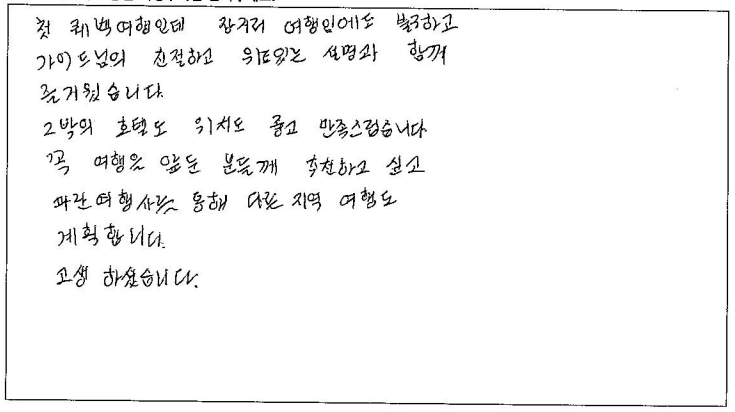 첫 퀘백여행인데 장거리 여행임에도 불구하고
가이드님의 친절하고 위트있는 설명과 함께
즐거웠습니다.
2박의 호텔도 위치도 좋고 만족스럽습니다
꼭 여행을 앞둔 분들께 추천하고 싶고
파란여행사를 통해 다른 지역 여행도
계획합니다.
고생 하셨습니다.